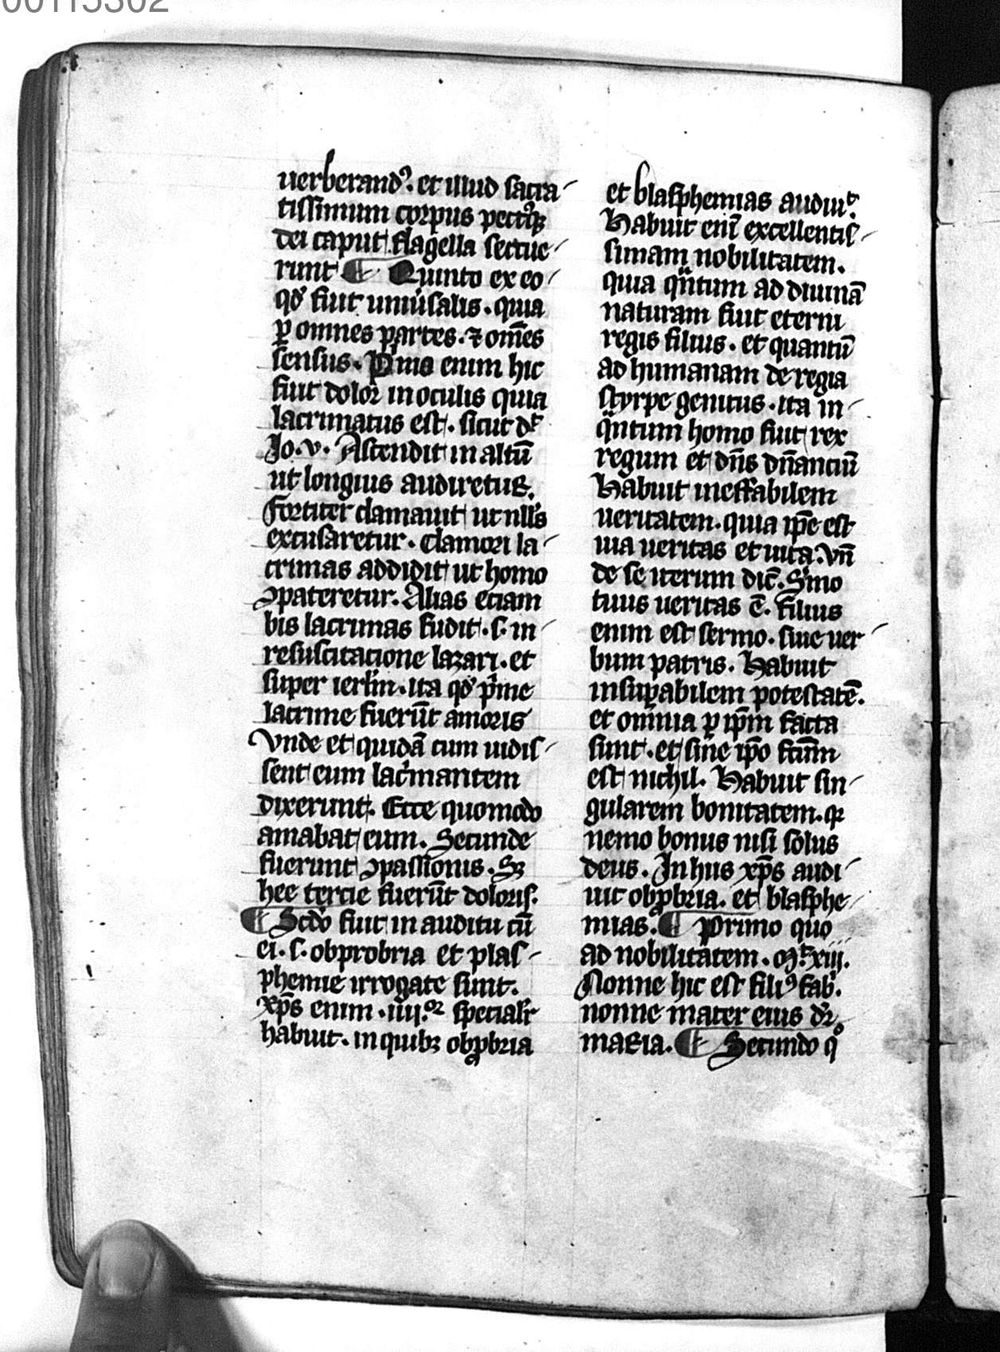 00115302
uerberand⁹. et illud sacra-
tissimum corpus pectusqꝫ
dei caput flagella secue-
runt ¶ Quinto ex eo
qđ fuit uniũsalis. quia
ꝑ omnes partes. ⁊ om̃es
sensus. Prius enim hic
fuit dolor in oculis quia
lacrimatus est. sicut dʳ
Io. v. Ascendit in altũ
ut longius audiretur.
fortiter clamauit ut nlł's
excusaretur. clamori la-
crimas addidit ut homo
ꝯpateretur. Alias etiam
bis lacrimas fudit. s. in
resuscitacione lazari. et
super ierł'm. ita qđ p'me
lacrime fuerũt amoris
Vnde et quidã cum uidis-
sent eum lac'mantem
dixerunt. Ecce quomodo
amabat eum. Secunde
fuerunt ꝯpassionis. Sꝫ
hee tercie fuerũt doloris.
¶ Scđo fuit in auditu cũ
ei. s. obprobria et plas-
phemie irrogate sunt.
xp̃s enim .iiii.ᵒʳ specialr̃
habuit. in quibꝫ obꝓbria
et blasphemias audiuᵗ.
Habuit eni̅ excellentis-
simam nobilitatem.
quia q̃ntum ad diuinã
naturam fuit eterni
regis filius. et quantũ
ad humanam de regia
styrpe genitus. ita in-
q̃ntum homo fuit rex
regum et dñs dñanciũ
Habuit ineffabilem
ueritatem. quia ip̃e est
uia ueritas et uita. Vñ
de se iterum dic̃. S'mo
tuus ueritas ẽ. filius
enim est sermo. siue uer-
bum patris. Habuit
insuꝑabilem potestatẽ.
et omnia ꝑ ip̃m facta
sunt. et sine ip̃o fc̃m
est nichil. Habuit sin-
gularem bonitatem. qꝛ
nemo bonus nisi solus
deus. In hiis xp̃s audi-
uit obꝓbria. et blasphe-
mias. ¶ Primo quo
ad nobilitatem. Mᵗ xiii.
Nonne hic est fili⁹ fab'.
nonne mater eius dʳ
maria. ¶ Secundo qᵒ